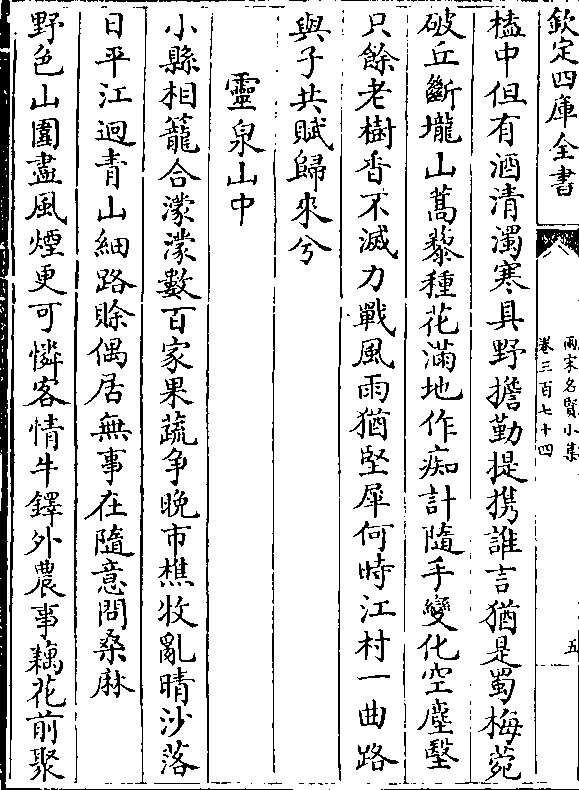 欽定四庫全書
兩宋名賢小集
卷三百七十四
五
榼中但有酒清濁寒具野擔勤提携誰言猶是蜀梅苑
破丘斷壠山蒿藜種花滿地作痴計隨手變化空塵翳
只餘老樹香不滅力戰風雨猶堅犀何時江村一曲路
與子共賦歸來兮
靈泉山中
小縣相籠合濛濛數百家果蔬争晚市樵牧亂晴沙落
日平江迥青山細路賒偶居無事在隨意問桑麻
野色山圍盡風煙更可憐客情牛鐸外農事藕花前聚